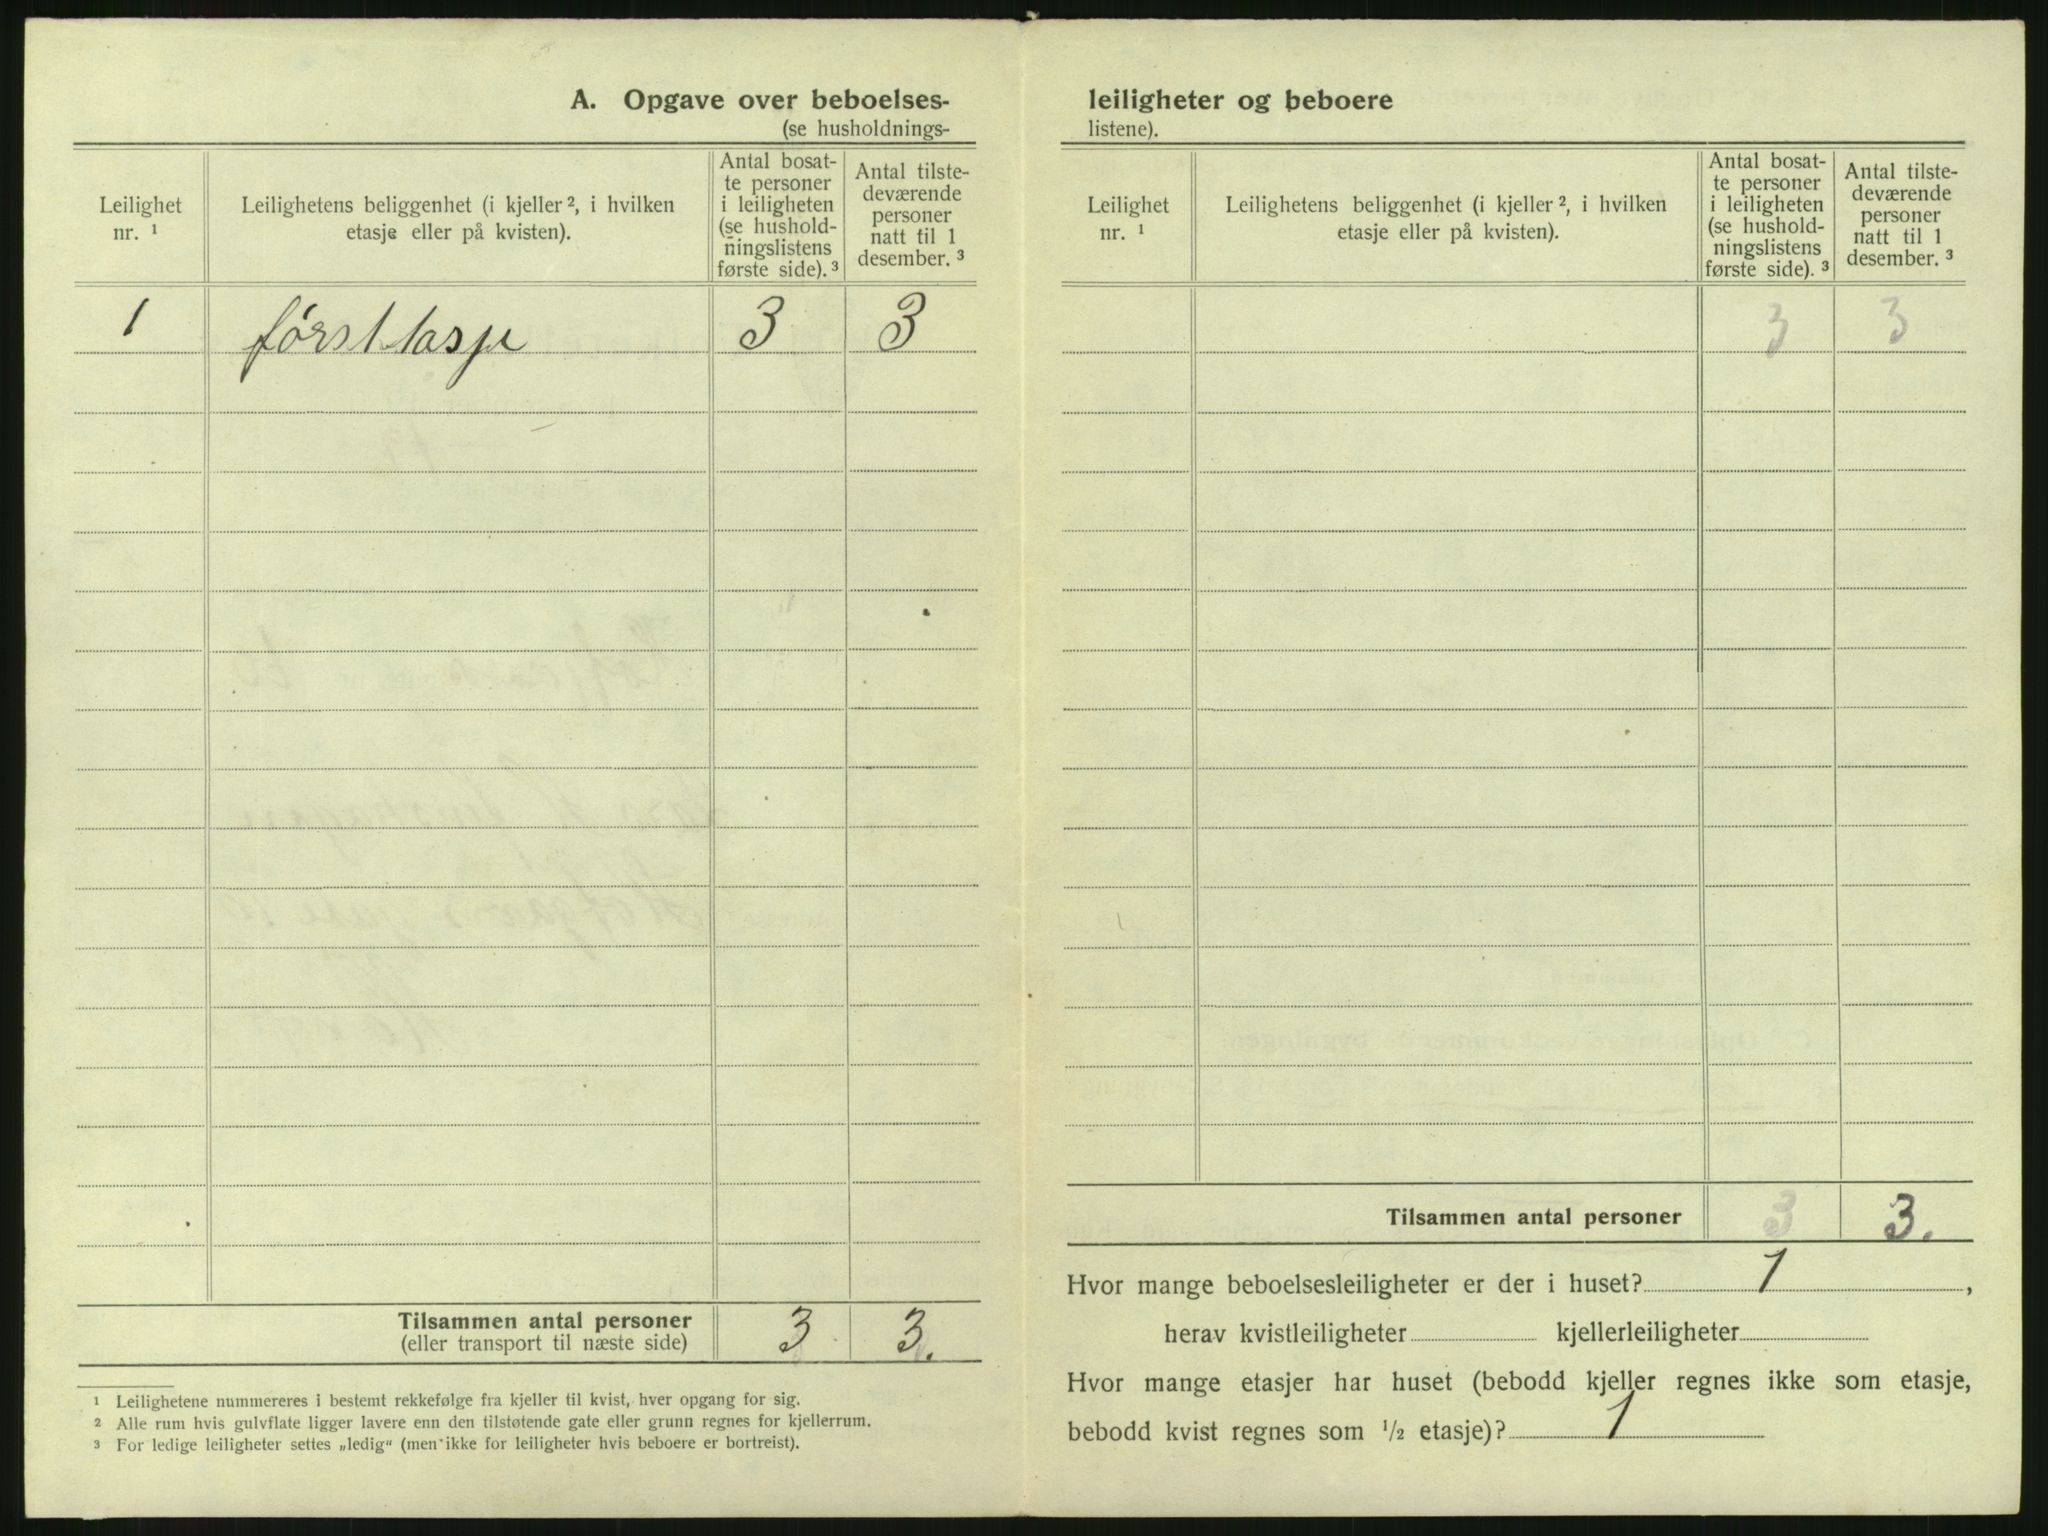 A. Opgave over beboelses-
(se husholdnings-
Leilighet nr. ¹
Leilighetens beliggenhet (i kjeller ², i hvilken etasje eller på kvisten).
Antal bosat-
te personer
i leiligheten
(se hushold-
ningslistens
første side). ³
Antal tilste-
deværende
personer
natt til 1
desember. ³
1 førsttasje 3 3
Tilsammen antal personer 3 3.
(eller transport til næste side)
¹ Leilighetene nummereres i bestemt rekkefølge fra kjeller til kvist, hver opgang for sig.
² Alle rum hvis gulvflate ligger lavere enn den tilstøtende gate eller grunn regnes for kjellerrum.
³ For ledige leiligheter settes „ledig“ (men ikke for leiligheter hvis beboere er bortreist).
leiligheter og beboere
listene).
Leilighet nr. ¹
Leilighetens beliggenhet (i kjeller ², i hvilken etasje eller på kvisten).
Antal bosat-
te personer
i leiligheten
(se hushold-
ningslistens
første side). ³
Antal tilste-
deværende
personer
natt til 1
desember. ³
3 3
Tilsammen antal personer 3 3.
Hvor mange beboelsesleiligheter er der i huset? 1,
herav kvistleiligheter kjellerleiligheter
Hvor mange etasjer har huset (bebodd kjeller regnes ikke som etasje,
bebodd kvist regnes som ½ etasje)? 1